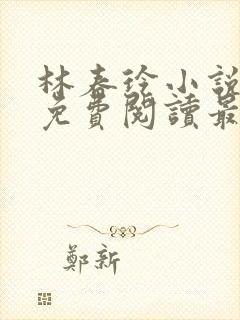 林春玲小說
免費閱讀最
鄭新